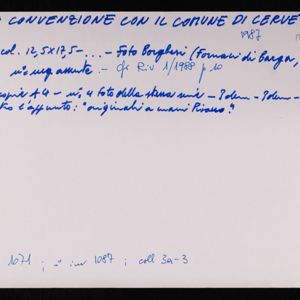 CONVENZIONE CON IL COMUNE DI CERVE
1987
col. 12,5x17,5 - ... - Foto Borghesi (Fornaci di Barga,
n° neg. assente. - Cfr Riv 1/1988 p 10
copie A4 - n. 4 foto della stessa serie - Idem - Idem -
l'appunto: "originali a mani Pirasso."
1071 ; - n° inv 1087 ; coll 3a-3